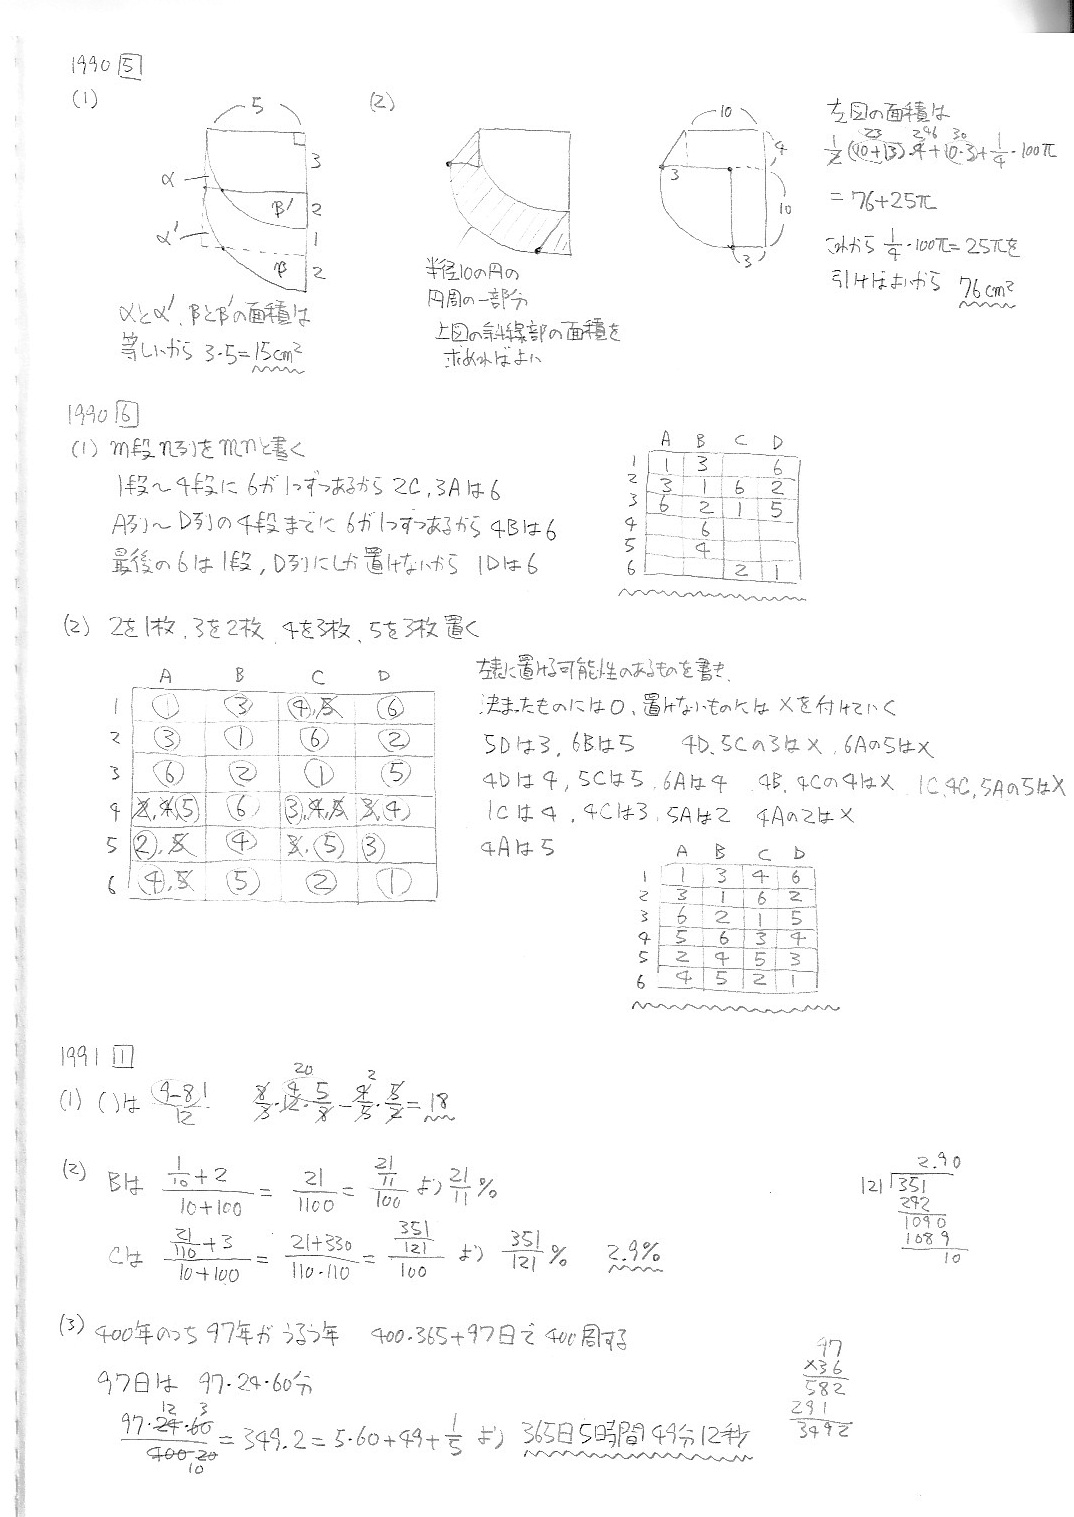 1990 5
(1)
5
3
2
1
2
α
β'
α'
β
αとα'、βとβ'の面積は
等しいから 3・5=15cm²
(2)
半径10の円の
円周の一部分
上図の斜線部の面積を
求めればよい
10
4
3
10
3
左図の面積は
23 246 30
1/2(10+13)・4+10・3+1/4・100π
=76+25π
これから 1/4・100π=25πを
引けばよいから 76cm²
1990 6
(1) m段n列をmnと書く
1段〜4段に6が1つずつあるから 2C,3Aは6
A列〜D列の4段までに6が1つずつあるから 4Bは6
最後の6は1段,D列にしか置けないから 1Dは6
A B C D
1 1 3 6
2 3 1 6 2
3 6 2 1 5
4 6
5 4
6 2 1
(2) 2を1枚、3を2枚、4を3枚、5を3枚置く
A B C D
1 1 3 4,5 6
2 3 1 6 2
3 6 2 1 5
4 2,4,5 6 3,4,5 3,4
5 2,5 4 3,5 3
6 4,5 5 2 1
左表に置ける可能性のあるものを書き、
決またものには○、置けないものには×を付けていく
5Dは3,6Bは5 4D、5Cの3は×、6Aの5は×
4Dは4,5Cは5,6Aは4 4B,4Cの4は× 1C,4C,5Aの5は×
1Cは4,4Cは3,5Aは2 4Aの2は×
4Aは5
A B C D
1 1 3 4 6
2 3 1 6 2
3 6 2 1 5
4 5 6 3 4
5 2 4 5 3
6 4 5 2 1
1991 1
(1) ()は (9-8)/12 1 8/3・12・5/8-4/5・5/2=18
20 4 2
(2) Bは (1/10+2)/(10+100)=21/1100=(21/11)/100 より 21/11%
Cは (21/110+3)/(10+100)=(21+330)/(110・110)=(351/121)/100 より 351/121% 2.9%
2.90
121 351
242
1090
1089
10
(3) 400年のうち97年がうるう年 400・365+97日で400周する
97日は 97・24・60分
12 3
97・24・60/400 20 10=349.2=5・60+49+1/5 より 365日5時間49分12秒
97
×36
582
291
3492